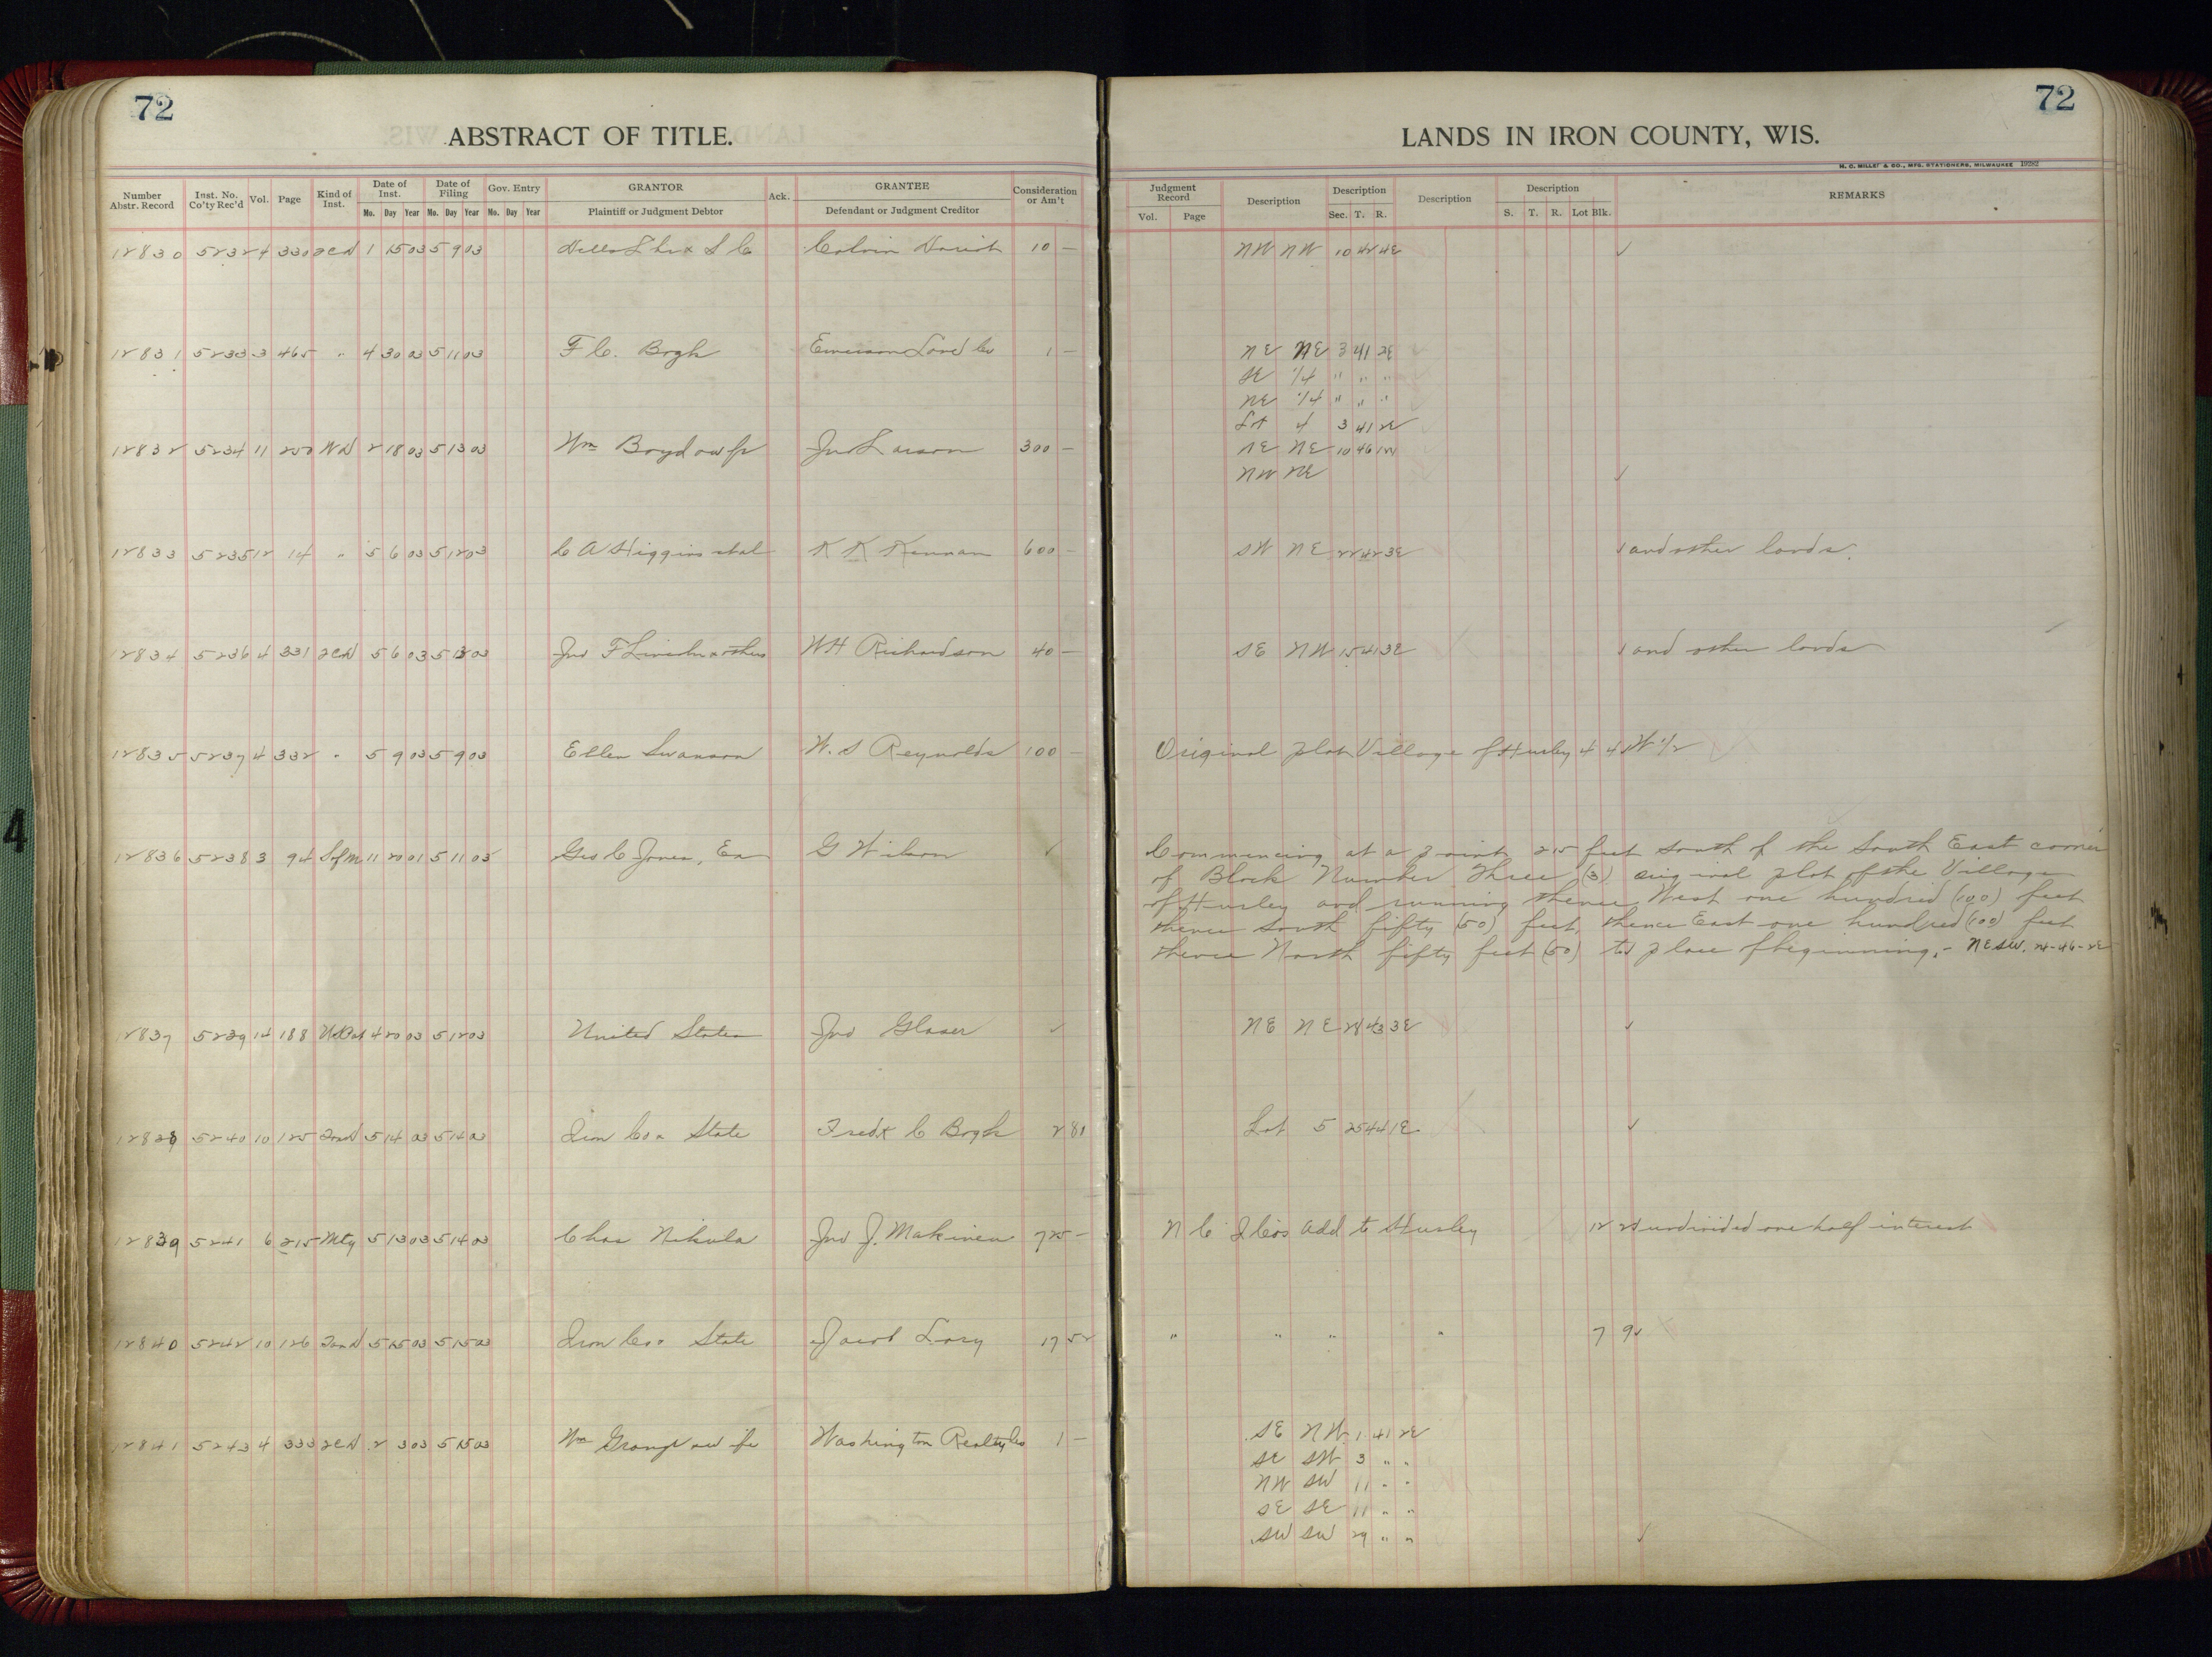 72
ABSTRACT OF TITLE.
Number Abstr. Record | Inst. No. Co'ty Rec'd | Vol. | Page | Kind of Inst. | Date of Inst. Mo. Day Year | Date of Filing Mo. Day Year | Gov. Entry Mo. Day Year | GRANTOR Plaintiff or Judgment Debtor | Ack. | GRANTEE Defendant or Judgment Creditor | Consideration or Am't
12830 5232 4 330 2CD 1 15 03 5 9 03 Calvin 10 —
12831 5233 3 465 " 4 30 03 5 11 03 F C. Bogk Emerson Land Co 1 —
12832 5234 11 250 WD 2 18 03 5 13 03 Wm Boyd Jno Larson 300 —
12833 5235 12 14 " 5 6 03 5 12 03 C A Higgins et al K K Kennan 600 —
12834 5236 4 331 2CD 5 6 03 5 03 Jno F Lincoln & others W H Richardson 40 —
12835 5237 4 332 " 5 9 03 5 9 03 Ellen Swanson W. S Reynolds 100 —
12836 5238 3 94 S of M 11 20 01 5 11 03 Geo C Jones, Ex G Wilson ✓
12837 5239 14 188 US Pat 4 20 03 5 12 03 United States Jno Glaser ✓
12838 5240 10 125 Tax D 5 14 03 5 14 03 Iron Co & State Fredk C Bogk 2 80
12839 5241 6 215 Mtg 5 13 03 5 14 03 Chas Nikula Jno J. Makinen 725 —
12840 5242 10 126 Tax D 5 15 03 5 15 03 Iron Co & State Jacob Lory 17 52
12841 5243 4 333 2CD 2 3 03 5 15 03 Wm Washington Realty Co 1 —
72
LANDS IN IRON COUNTY, WIS.
H. C. MILLER & CO., MFG. STATIONERS, MILWAUKEE 19282
Judgment Record Vol. Page | Description | Description Sec. T. R. | Description | Description S. T. R. Lot Blk. | REMARKS
NW NW 10 42 4E ✓
NE NE 3 41 2E
SE 1/4 " " "
NE 1/4 " " "
Lot 4 3 41 2E
SE NE 10 46 1W
NW NE ✓
SW NE 22 42 3E ✓ and other lands.
SE NW 15 41 3E ✓ and other lands
Original plat Village of Hurley 4 4 W 1/2
Commencing at a point 25 feet South of the South East corner
of Block Number Three (3) original plat of the Village
of Hurley and running thence West one hundred (100) feet
thence South fifty (50) feet, thence East one hundred (100) feet
thence North fifty feet (50) to place of beginning. - NE SW. 24-46-2E
NE NE 28 43 3E ✓
Lot 5 25 44 1E ✓
N C I Cos Add to Hurley 12 22 undivided one half interest
" " " " 7 9 ✓
SE NW 1 41 2E
SE SW 3 " "
NW SW 11 " "
SE SE 11 " "
SW SW 29 " " ✓
4